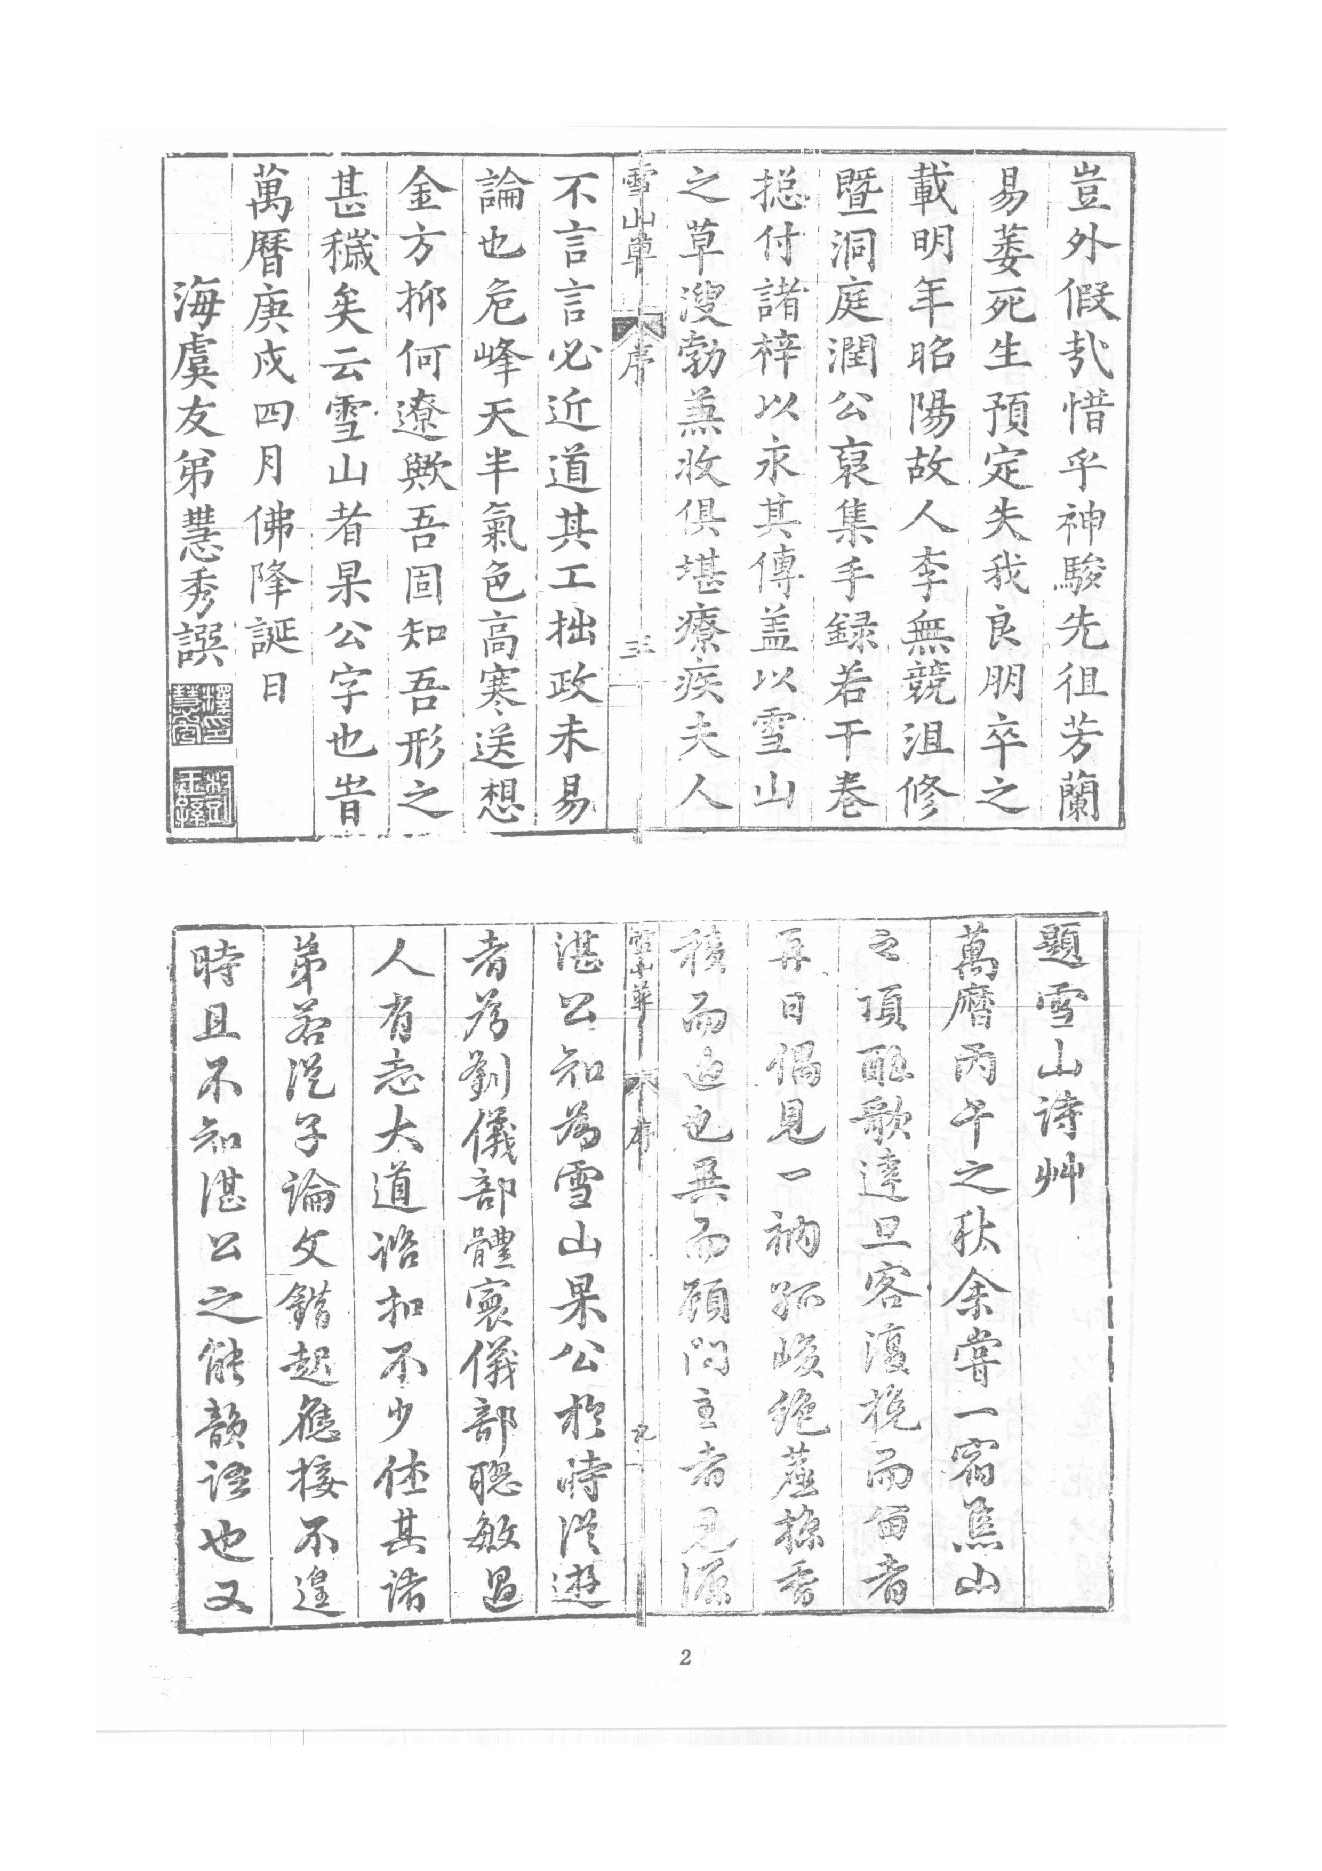 豈外假㢤惜乎神駿先徂芳蘭
易萎死生預定失我良朋卒之
載明年昭陽故人李無競沮修
暨洞庭潤公裒集手録若干卷
揔付諸梓以永其傳盖以雪山
之草溲勃兼收俱堪療疾夫人
雪山草
序
三
不言言必近道其工拙政未易
論也危峰天半氣色高寒送想
金方抑何遼歟吾固知吾形之
甚穢矣云雪山者杲公字也旹
萬曆庚戍四月佛降誕日
海虞友弟慧秀譔
題雪山詩艸
萬曆丙午之秋余嘗一宿焦山
之頂酣歌達旦客復挽而留者
再日偶見一衲孤峻絶
積而迫也異而顧問主者見源
雪山草
序
湛公知為雪山杲公於時從遊
者為劉儀部體寰儀部聰敏過
人有志大道諮扣不少住其諸
弟若從子論文錯起應接不遑
時且不知湛公之能韻語也又
2